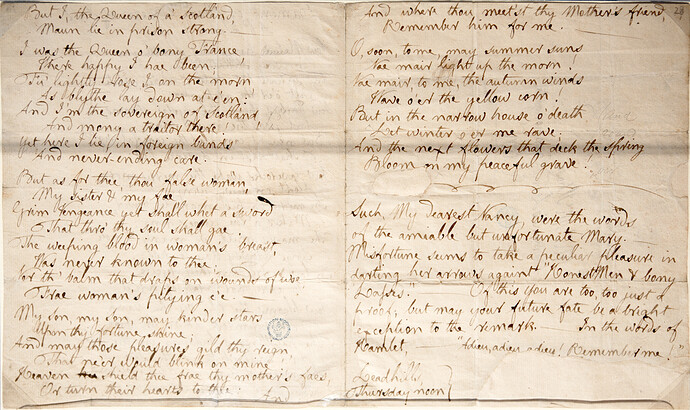 But I, the Queen of a' Scotland,
Maun lie in prison strang.
I was the Queen o' bony France
Where happy I hae been;
Fu' lightly rose I on the morn,
As blythe lay down at e'en:
And I'm the sovereign of Scotland,
And mony a traitor there;
Yet here I lie in foreign bands
And never-ending care.
But as for thee, thou false woman,
My Sister & my fae,
Grim vengeance yet shall whet a sword
That thro' thy soul shall gae:
The weeping blood in woman's breast,
Was never known to thee;
Nor th' balm that draps on wounds of woe
Frae woman's pitying e'e.—
My son, my son, may kinder stars
Upon thy fortune shine;
And may those pleasures gild thy reign,
That ne'er would blink on mine
Heaven shield thee frae thy mother's faes,
Or turn their hearts to thee:
And
24
And where thou meet'st thy Mother's friend,
Remember him for me.
O, soon, to me, may summer suns
Nae mair light up the morn!
Nae mair, to me, the autumn winds
Wave o'er the yellow corn!
But in the narrow house o' death
Let winter o'er me rave;
And the next flowers that deck the spring
Bloom on my peaceful grave.
Such, My dearest Nancy, were the words
of the amiable but unfortunate Mary.—
Misfortune seems to take a peculiar pleasure in
darting her arrows against "Honest Men & bony
Lasses." Of this you are too, too just a
proof; but may your future fate be a bright
exception to the remark.— In the words of
Hamlet,— "Adieu, adieu, adieu! Remember me."
Leadhills
Thursday noon